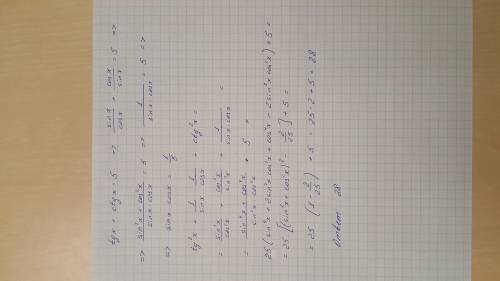 tgx + ctgx = 5 => sinx/cosx + cosx/sinx = 5 =>
=> (sin²x + cos²x)/(sinx cosx) = 5 => 1/(sinx cosx) = 5 =>
=> sinx·cosx = 1/5
tg²x + 1/(sinx·cosx) + ctg²x =
= sin²x/cos²x + cos²x/sin²x + 1/(sinx·cosx) =
= (sin⁴x + cos⁴x)/(sin²x·cos²x) + 5 =
25(sin⁴x + 2sin²x cos²x + cos⁴x - 2sin²x cos²x) + 5 =
= 25[(sin²x + cos²x)² - 2/25] + 5 =
= 25 · (1 - 2/25) + 5 = 25 - 2 + 5 = 28
Ответ 28